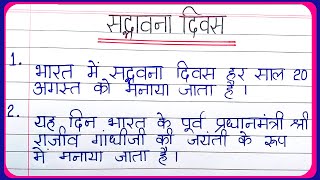 सद्भावना दिवस
1. भारत में सद्भवना दिवस हर साल 20
अगस्त को मनाया जाता है।
2. यह दिन भारत के पूर्व प्रधानमंत्री श्री
राजीव गांधीजी की जयंती के रूप
में मनाया जाता है।